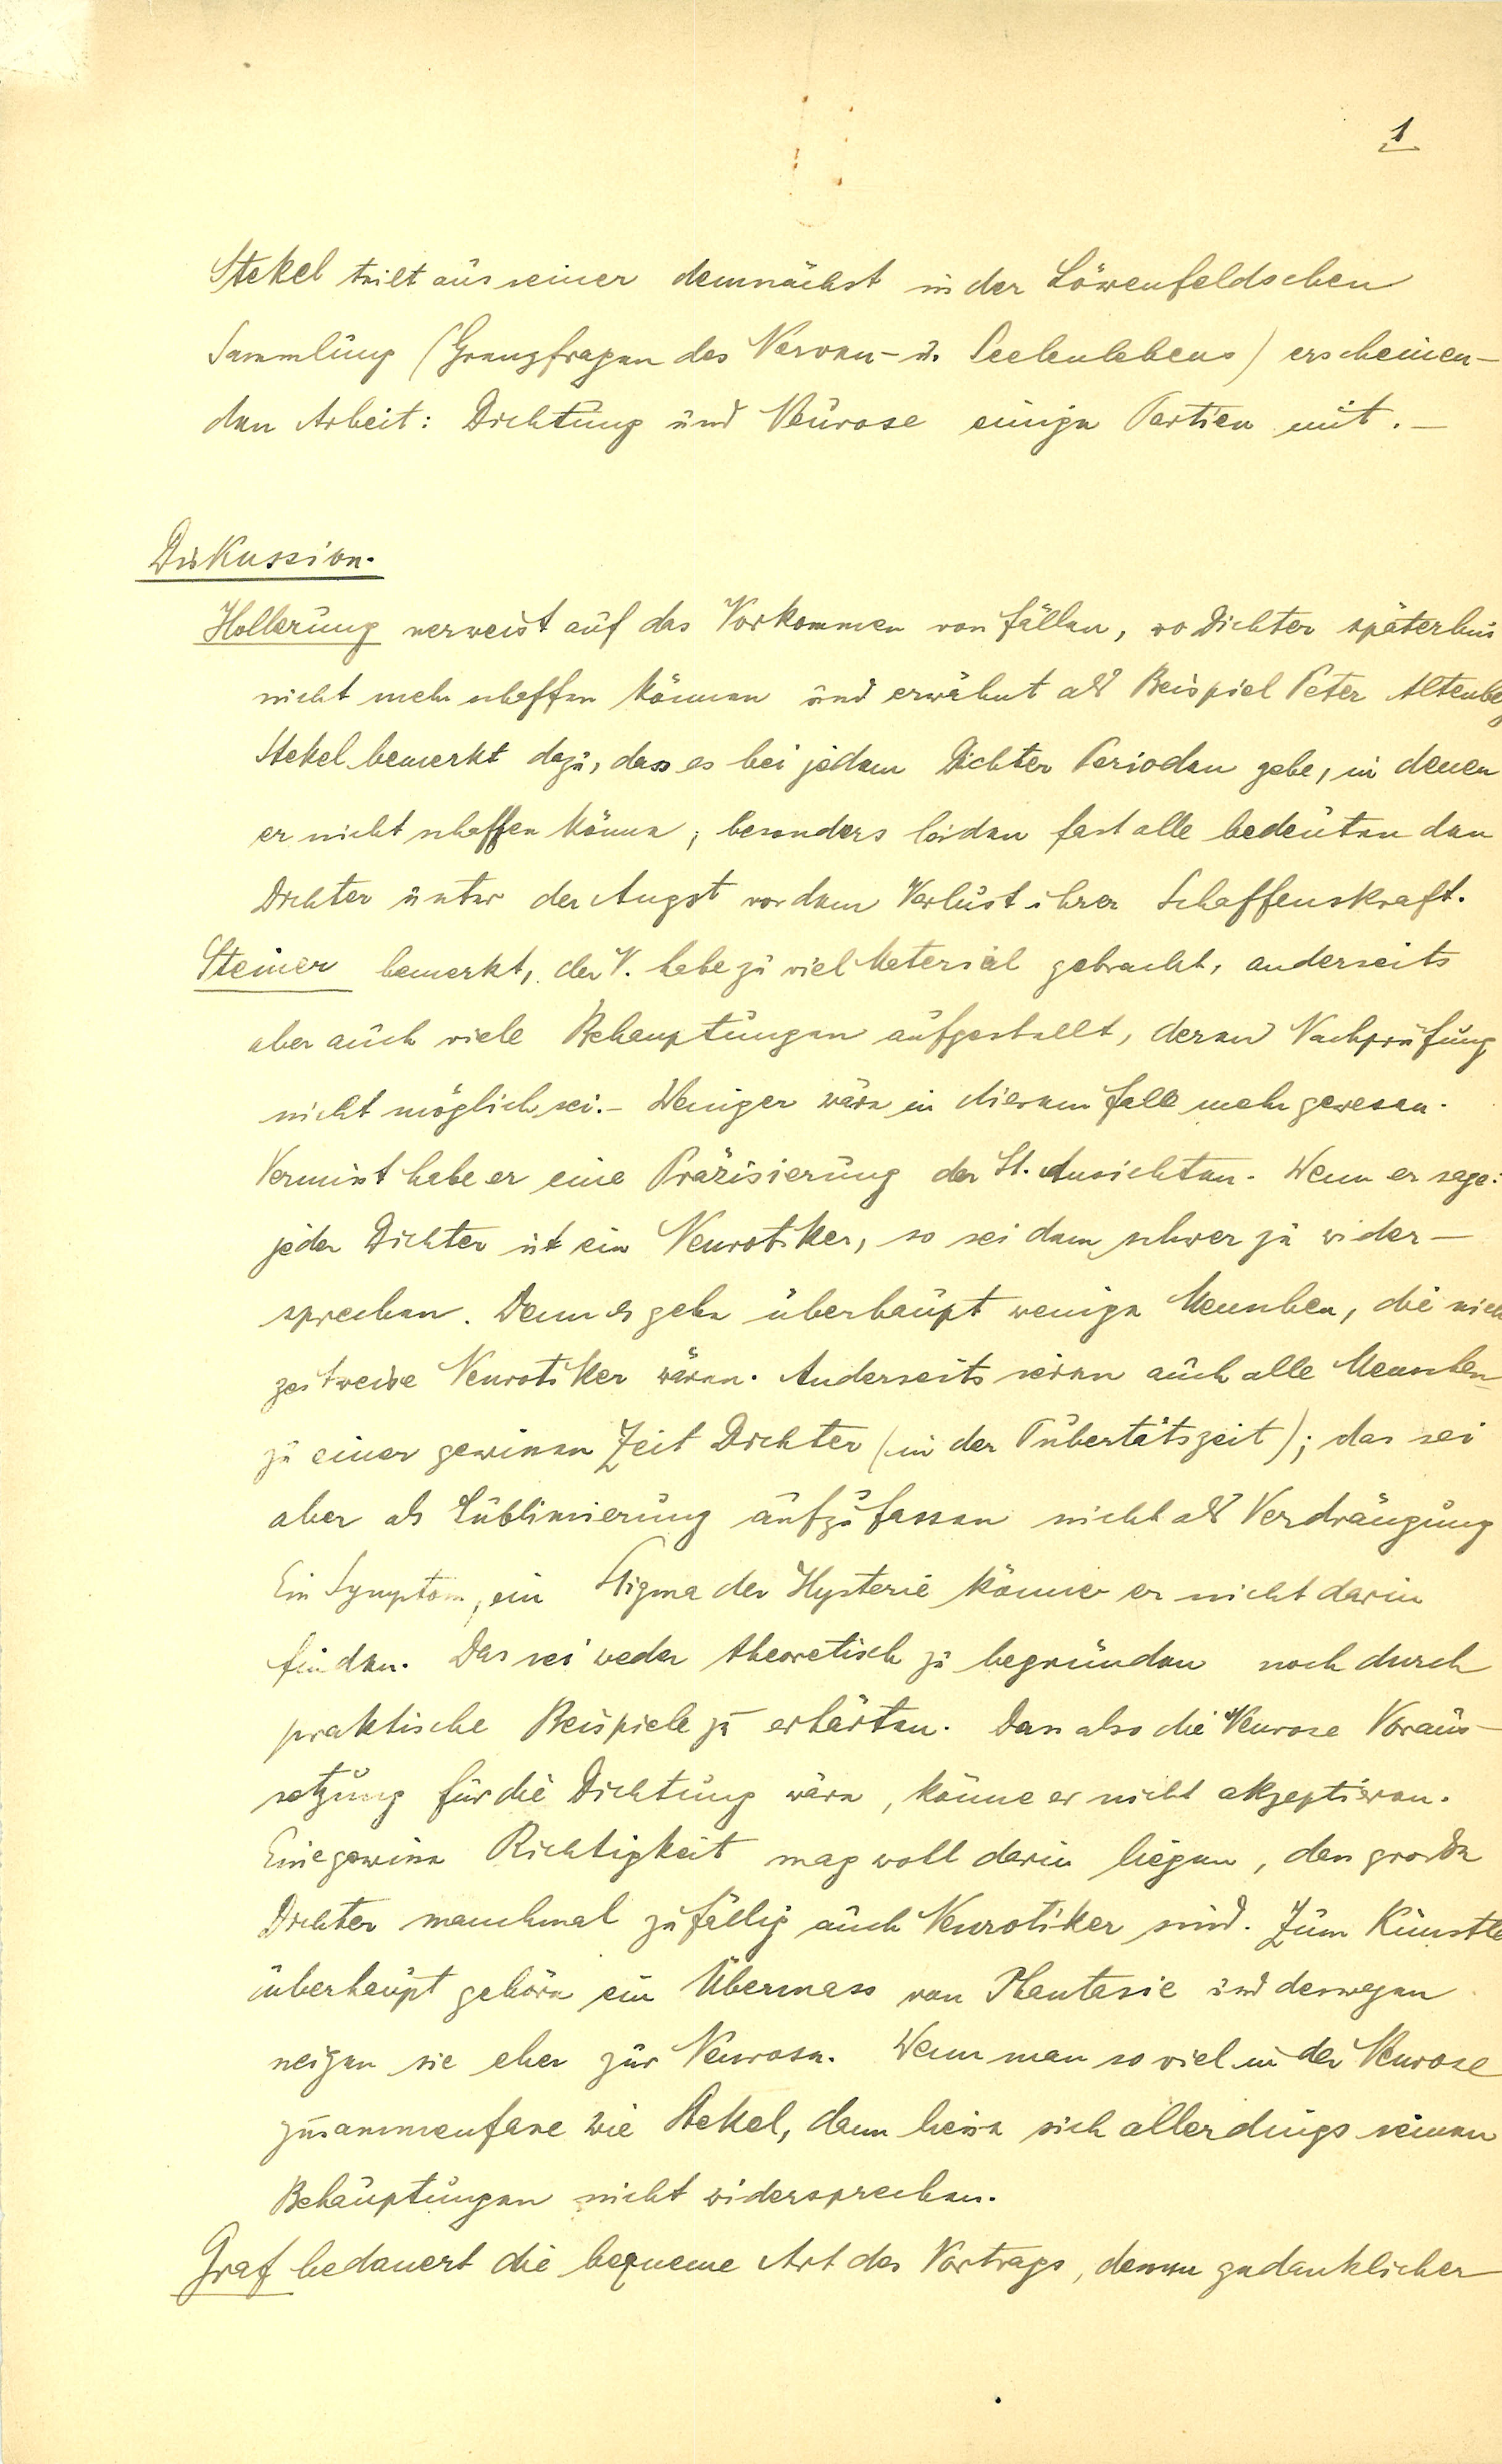 1
Stekel teilt aus seiner demnächst in der Löwenfeldschen
Sammlung (Grenzfragen des Nerven- u. Seelenlebens) erscheinen-
den Arbeit: Dichtung und Neurose einige Partien mit. —
Diskussion.
Hollerung verweist auf das Vorkommen von Fällen, wo Dichter späterhin
nicht mehr schaffen können und erwähnt als Beispiel Peter Altenberg
Stekel bemerkt dazu, dass es bei jedem Dichter Perioden gebe, in denen
er nicht schaffen könne; besonders leiden fast alle bedeutenden
Dichter unter der Angst vor dem Verlust ihrer Schaffenskraft.
Steiner bemerkt, der V. habe zu viel Material gebracht, anderseits
aber auch viele Behauptungen aufgestellt, deren Nachprüfung
nicht möglich sei. – Weniger wäre in diesem Falle mehr gewesen.
Vermisst habe er eine Präzisierung der St. Ansichten. Wenn er sage:
jeder Dichter ist ein Neurotiker, so sei dem schwer zu wider-
sprechen. Denn es gebe überhaupt wenige Menschen, die nich
zeitweise Neurotiker wären. Anderseits seien auch alle Menschen
zu einer gewissen Zeit Dichter (in der Pubertätszeit); das sei
aber als Sublimierung aufzufassen nicht als Verdrängung
Ein Symptom, ein Stigma der Hysterie könne er nicht darin
finden. Das sei weder theoretisch zu begründen noch durch
praktische Beispiele zu erhärten. Dass also die Neurose Voraus-
setzung für die Dichtung wäre, könne er nicht akzeptieren.
Eine gewisse Richtigkeit mag wohl darin liegen, dass grosse
Dichter manchmal zufällig auch Neurotiker sind. Zum Künstle
überhaupt gehöre ein Übermass von Phantasie und deswegen
neigen sie eher zur Neurose. Wenn man so viel in der Neurose
zusammenfasse wie Stekel, dann liesse sich allerdings seinen
Behauptungen nicht widersprechen.
Graf bedauert die bequeme Art des Vortrags, dessen gedanklicher